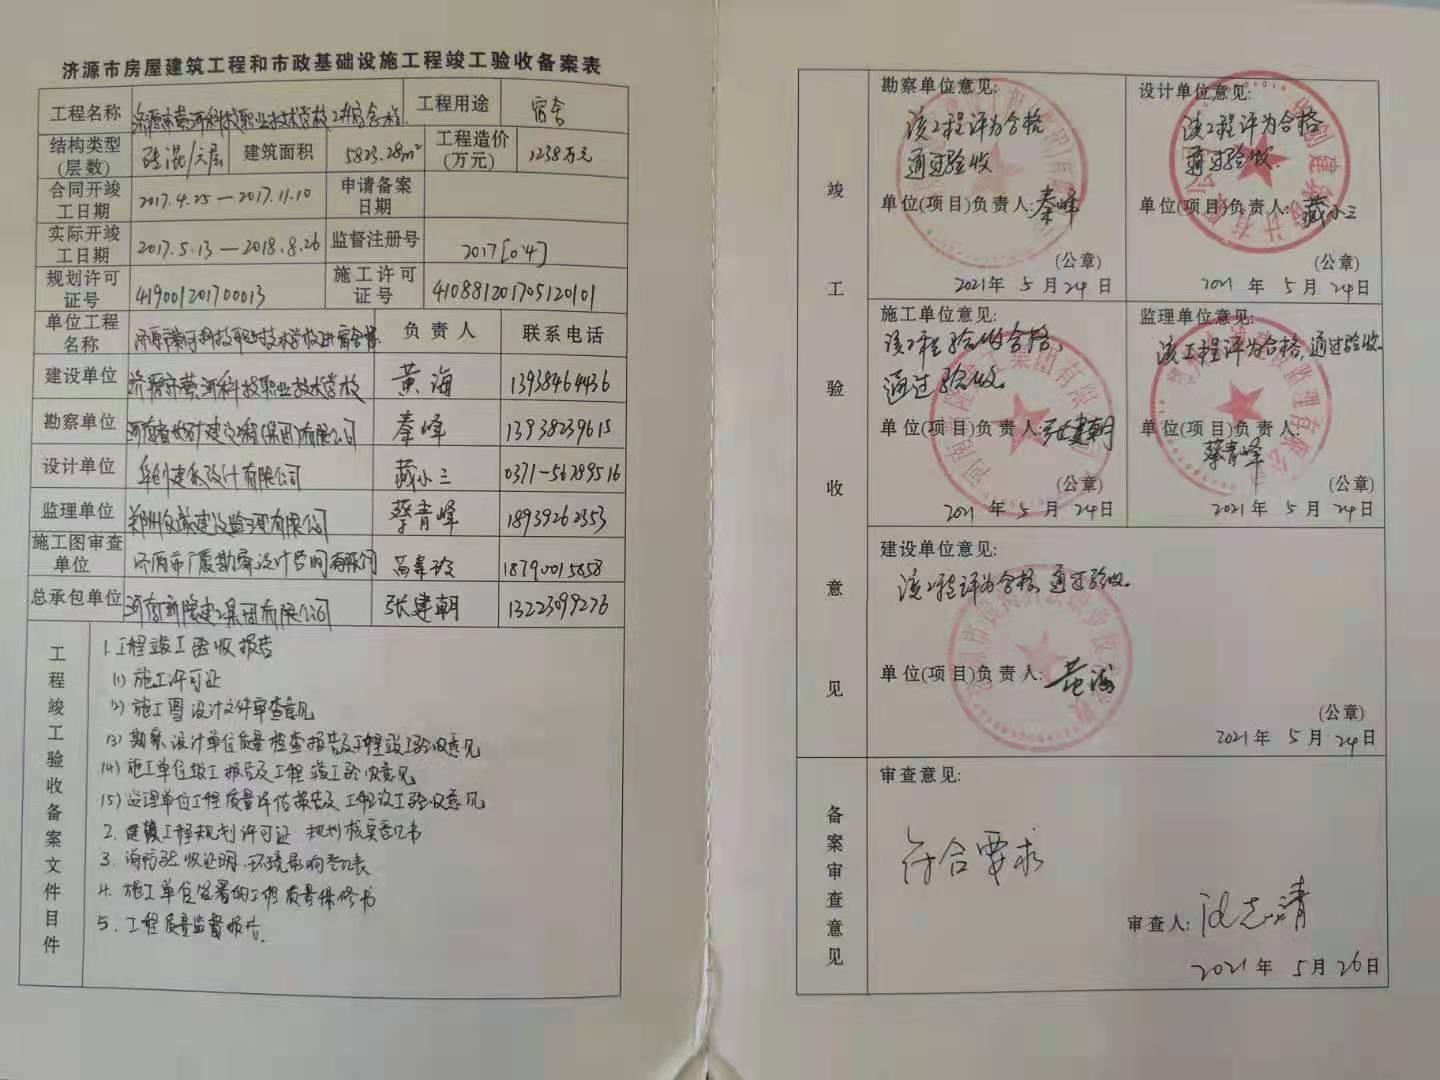 济源市房屋建筑工程和市政基础设施工程竣工验收备案表
工程名称 济源市黄河科技职业技术学校2#宿舍楼 工程用途 宿舍
结构类型(层数) 砖混/六层 建筑面积 5823.28m² 工程造价(万元) 1238万元
合同开竣工日期 2017.4.25—2017.11.10 申请备案日期
实际开竣工日期 2017.5.13—2018.8.26 监督注册号 2017[014]
规划许可证号 419001201700013 施工许可证号 410881201705120101
单位工程名称 济源市黄河科技职业技术学校2#宿舍楼 负责人 联系电话
建设单位 济源市黄河科技职业技术学校 黄海 13938464436
勘察单位 秦峰 13938239615
设计单位 华创建筑设计有限公司 臧小三 0371-56789516
监理单位 郑州 建设监理有限公司 蔡青峰 18939262353
施工图审查单位 济源市广厦勘察设计咨询有限公司 18790015858
总承包单位 河南新隆建工集团有限公司 张建朝 13223099276
工程竣工验收备案文件目件
1.工程竣工验收报告
(1)施工许可证
(2)施工图设计文件审查意见
(3)勘察、设计单位质量检查报告及工程竣工验收意见
(4)施工单位竣工报告及工程竣工验收意见
(5)监理单位工程质量评估报告及工程竣工验收意见
2.建设工程规划许可证 规划核实意见书
3.消防验收证明.环境影响登记表
4.施工单位签署的工程质量保修书
5.工程质量监督报告.
竣工验收意见
勘察单位意见:
该工程评为合格
通过验收
单位(项目)负责人:秦峰
(公章)
2021年 5月24日
设计单位意见:
该工程评为合格
通过验收.
单位(项目)负责人:臧小三
(公章)
2021年 5月24日
施工单位意见:
该工程验收合格,
通过验收.
单位(项目)负责人:张建朝
(公章)
2021年 5月24日
监理单位意见:
该工程评为合格,通过验收.
单位(项目)负责人:
蔡青峰
(公章)
2021年 5月24日
建设单位意见:
该工程评为合格,通过验收.
单位(项目)负责人:黄海
(公章)
2021年 5月24日
备案审查意见
审查意见:
符合要求
审查人:
2021年 5月26日